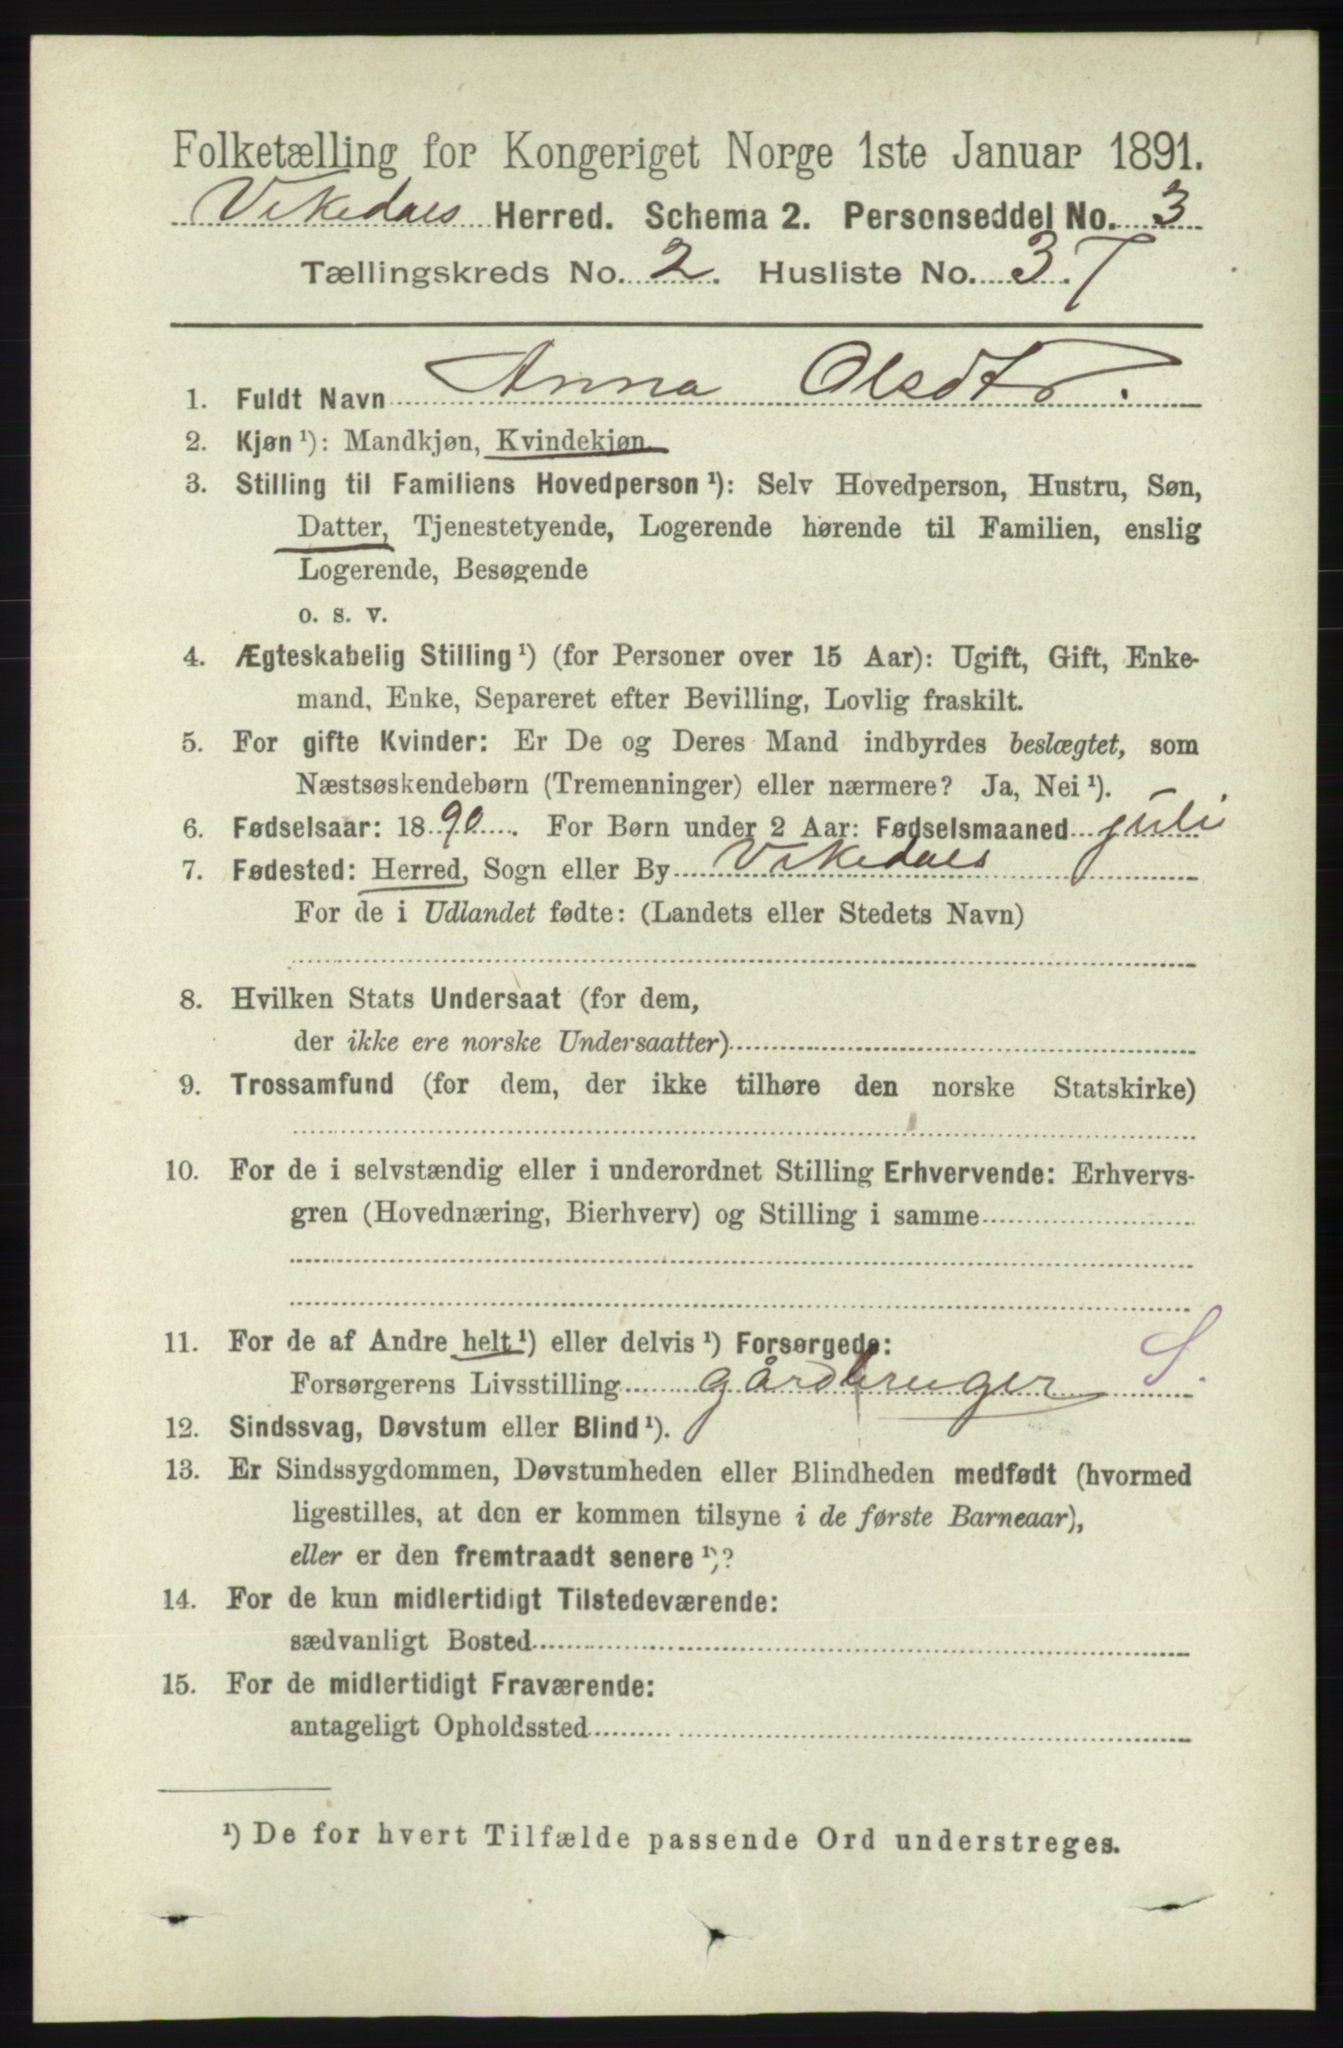 Folketælling for Kongeriget Norge 1ste Januar 1891.
Vikedals Herred. Schema 2. Personseddel No. 3
Tællingskreds No. 2. Husliste No. 37
1. Fuldt Navn Anna Olsdtr.
2. Kjøn ¹): Mandkjøn, Kvindekjøn.
3. Stilling til Familiens Hovedperson ¹): Selv Hovedperson, Hustru, Søn,
Datter, Tjenestetyende, Logerende hørende til Familien, enslig
Logerende, Besøgende
o. s. v.
4. Ægteskabelig Stilling ¹) (for Personer over 15 Aar): Ugift, Gift, Enke-
mand, Enke, Separeret efter Bevilling, Lovlig fraskilt.
5. For gifte Kvinder: Er De og Deres Mand indbyrdes beslægtet, som
Næstsøskendebørn (Tremenninger) eller nærmere? Ja, Nei ¹).
6. Fødselsaar: 1890. For Børn under 2 Aar: Fødselsmaaned juli
7. Fødested: Herred, Sogn eller By Vikedals
For de i Udlandet fødte: (Landets eller Stedets Navn)
8. Hvilken Stats Undersaat (for dem,
der ikke ere norske Undersaatter)
9. Trossamfund (for dem, der ikke tilhøre den norske Statskirke)
10. For de i selvstændig eller i underordnet Stilling Erhvervende: Erhvervs-
gren (Hovednæring, Bierhverv) og Stilling i samme
11. For de af Andre helt ¹) eller delvis ¹) Forsørgede:
Forsørgerens Livsstilling gårdbruger S.
12. Sindssvag, Døvstum eller Blind ¹).
13. Er Sindssygdommen, Døvstumheden eller Blindheden medfødt (hvormed
ligestilles, at den er kommen tilsyne i de første Barneaar),
eller er den fremtraadt senere ¹)?
14. For de kun midlertidigt Tilstedeværende:
sædvanligt Bosted
15. For de midlertidigt Fraværende:
antageligt Opholdssted
¹) De for hvert Tilfælde passende Ord understreges.